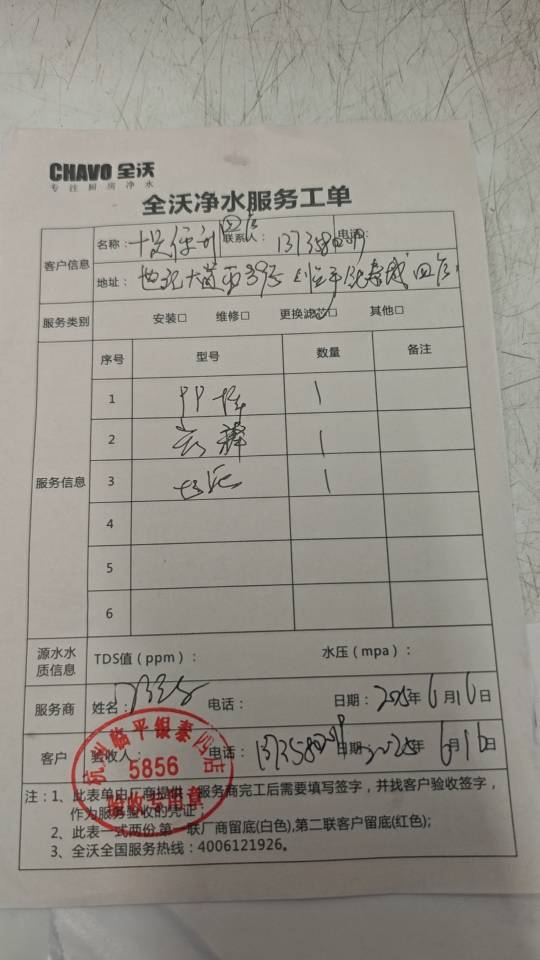 CHAVO 全沃
专注厨房净水
全沃净水服务工单
客户信息
名称： 十足便利 联系人： 电话：
地址： 39号 四店
服务类别 安装□ 维修□ 更换滤芯□ 其他□
服务信息
序号 型号 数量 备注
1 PP棉 1
2 炭棒 1
3 1
4
5
6
源水水质信息 TDS值（ppm）： 水压（mpa）：
服务商 姓名： 电话： 日期：2025年6月16日
客户 验收人： 电话： 日期：2025年6月16日
杭州临平银泰四店
5856
验收专用章
注：1、此表单由厂商提供，服务商完工后需要填写签字，并找客户验收签字，
作为服务验收的凭证
2、此表一式两份,第一联厂商留底(白色),第二联客户留底(红色);
3、全沃全国服务热线：4006121926。